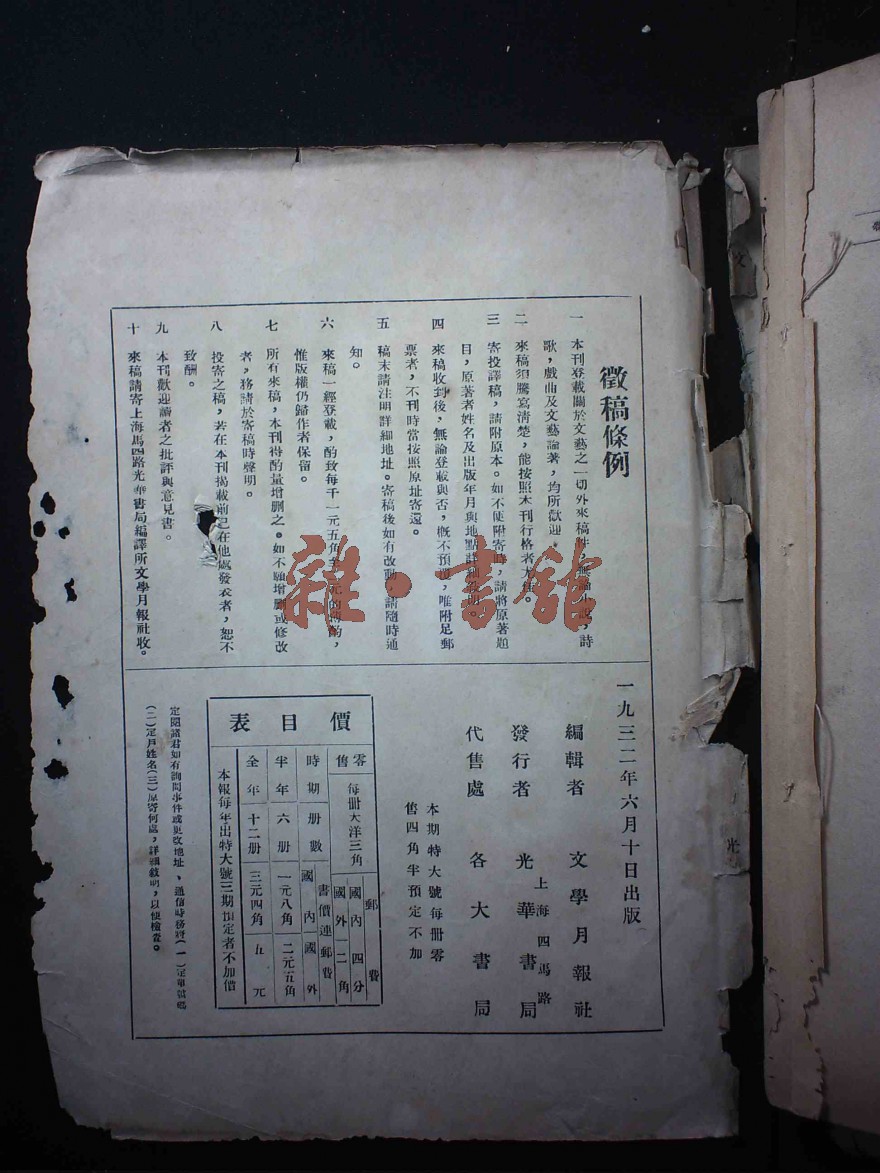 徵稿條例
一 本刊登載關於文藝之一切外來稿件,無論小說,詩
歌,戲曲及文藝論著,均所歡迎。
二 來稿須騰寫清楚,能按照本刊行格者尤佳。
三 寄投譯稿,請附原本。如不便附寄時,請將原著題
目,原著者姓名及出版年月與地點詳細
四 來稿收到後,無論登載與否,槪不預覆,唯附足郵
票者,不刊時當按照原址寄還。
五 稿末請注明詳細地址。寄稿後如有改動,請隨時通
知。
六 來稿一經登載,酌致每千一元五角至 元的
惟版權仍歸作者保留。
七 所有來稿,本刊得酌量增删之。如不願增删或修改
者,務請於寄稿時聲明。
八 投寄之稿,若在本刊揭載前已在他處發表者,恕不
致酬。
九 本刊歡迎讀者之批評與意見書。
十 來稿請寄上海馬四路光華書局編譯所文學月報社收。
雜·書舘
一九三二年六月十日出版
編輯者 文學月報社
上海四馬路
發行者 光華書局
代售處 各大書局
本期特大號每冊零
售四角半預定不加
價目表
零售 每冊大洋三角 郵費 國內四分 國外二角
時期 册數 書價連郵費 國內 國外
半年 六册 一元八角 二元五角
全年 十二册 三元四角 五元
本報每年出特大號三期預定者不加價
定閱諸君如有詢問事件或更改地址,通信時務將(一)定單號碼
(二)定戶姓名(三)原寄何處,詳細敘明,以便檢查。
文
光